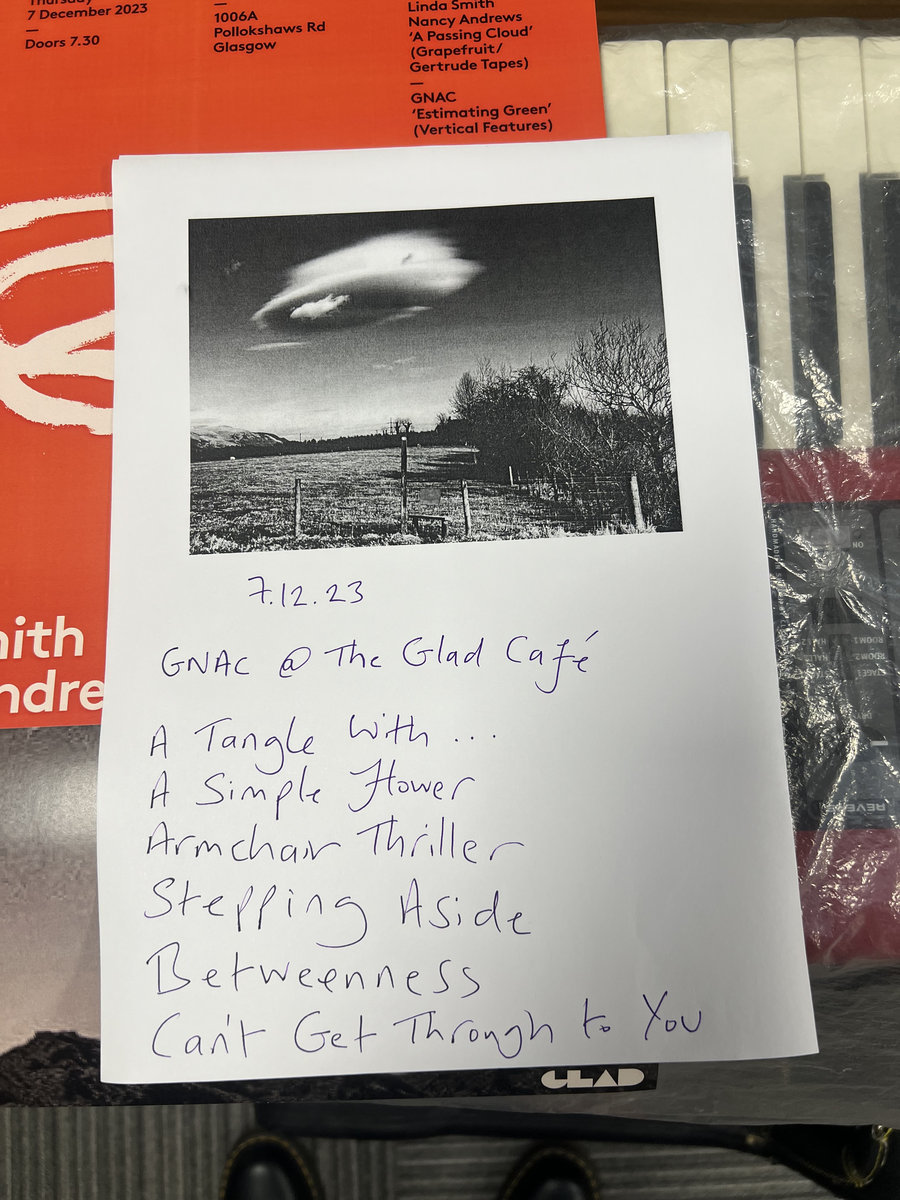 Thursday
7 December 2023
—
Doors 7.30
—
1006A
Pollokshaws Rd
Glasgow
Linda Smith
Nancy Andrews
‘A Passing Cloud’
(Grapefruit/
Gertrude Tapes)
—
GNAC
‘Estimating Green’
(Vertical Features)
7.12.23
GNAC @ The Glad Café
A Tangle With ...
A Simple Flower
Armchair Thriller
Stepping Aside
Betweenness
Can't Get Through to You
mith
ndre
GLAD
ON
ROOM 1
ROOM 2
STAGE 1
HALL
REVE